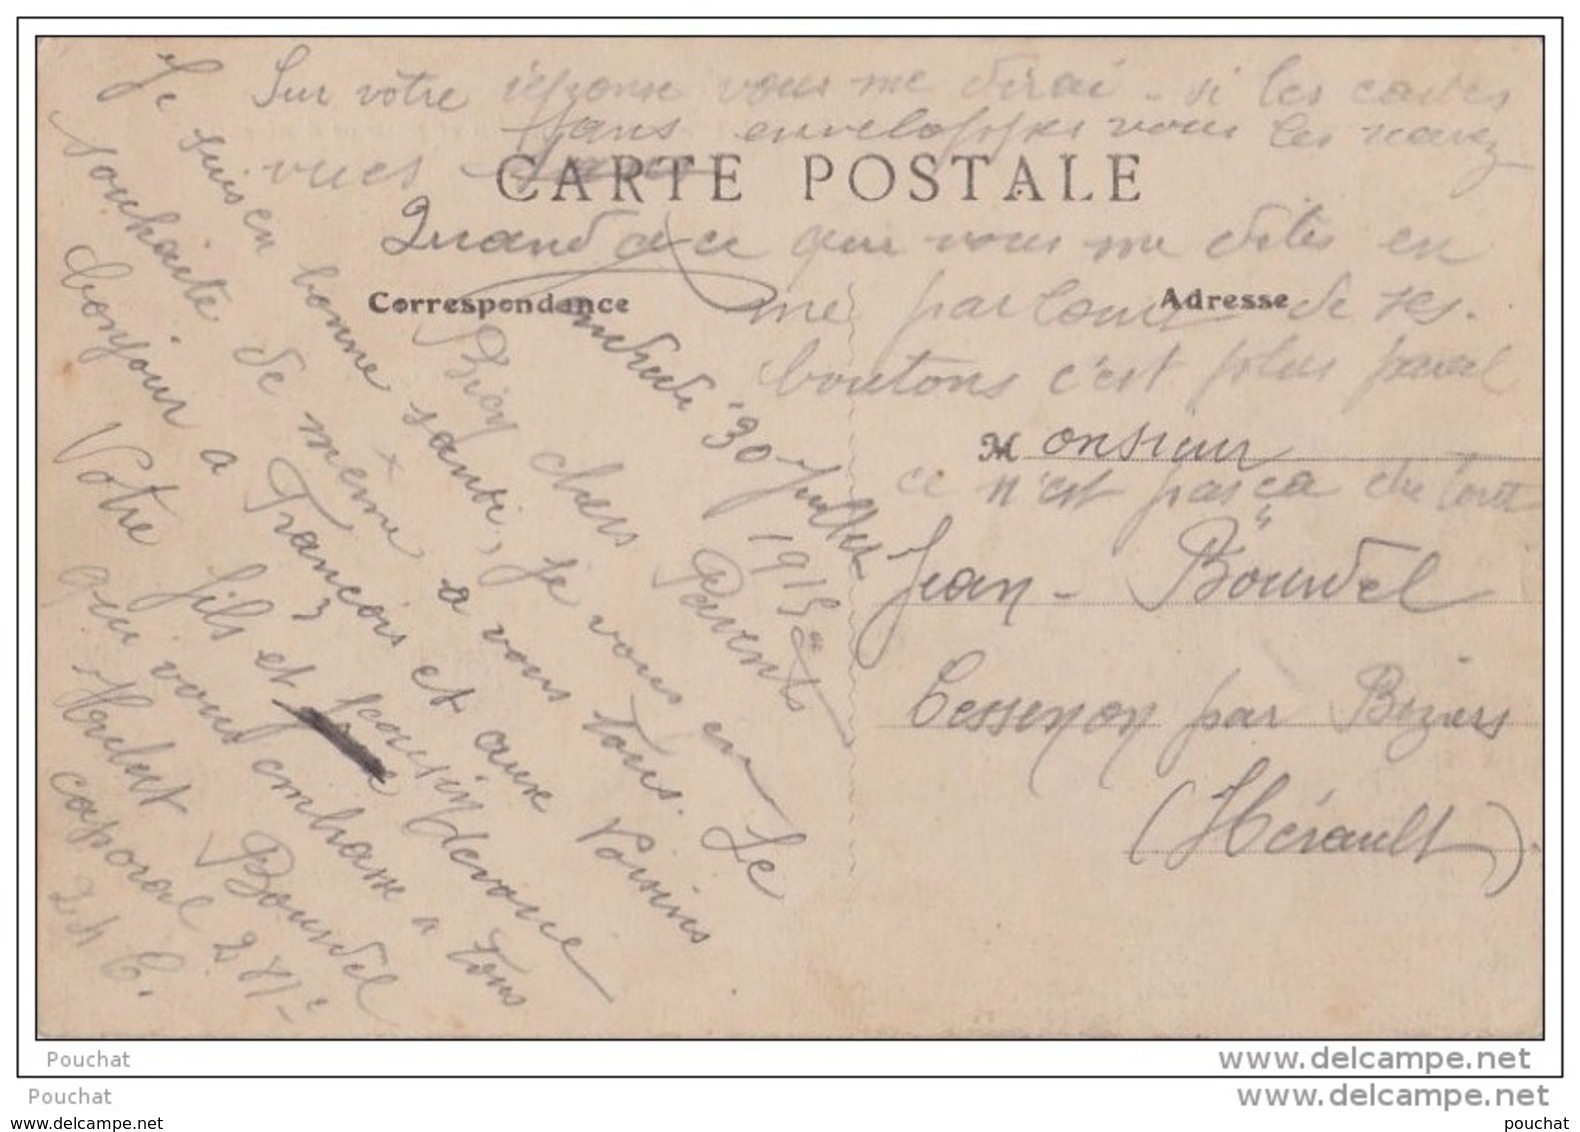 Sur votre réponse vous me dirai - si les cartes
sans enveloppes vous les recevez
vues
CARTE POSTALE
Quand a ce que vous me dites en
me parlant de ses
boutons c'est plus pareil
ce n'est pas ça du tout
Correspondance
Adresse
Vendredi 30 Juillet
1915
Bien chers Parents
Je suis en bonne santé, je vous en
souhaite de même a vous tous. Le
bonjour a François et aux Voisins
Votre fils et cousin dévoué
qui vous embrasse a tous
Bourdel
caporal 281e
24 C.
Monsieur
Jean - Bourdel
Cessenon par Béziers
(Hérault)
Pouchat
www.delcampe.net
Pouchat
www.delcampe.net
www.delcampe.net
pouchat